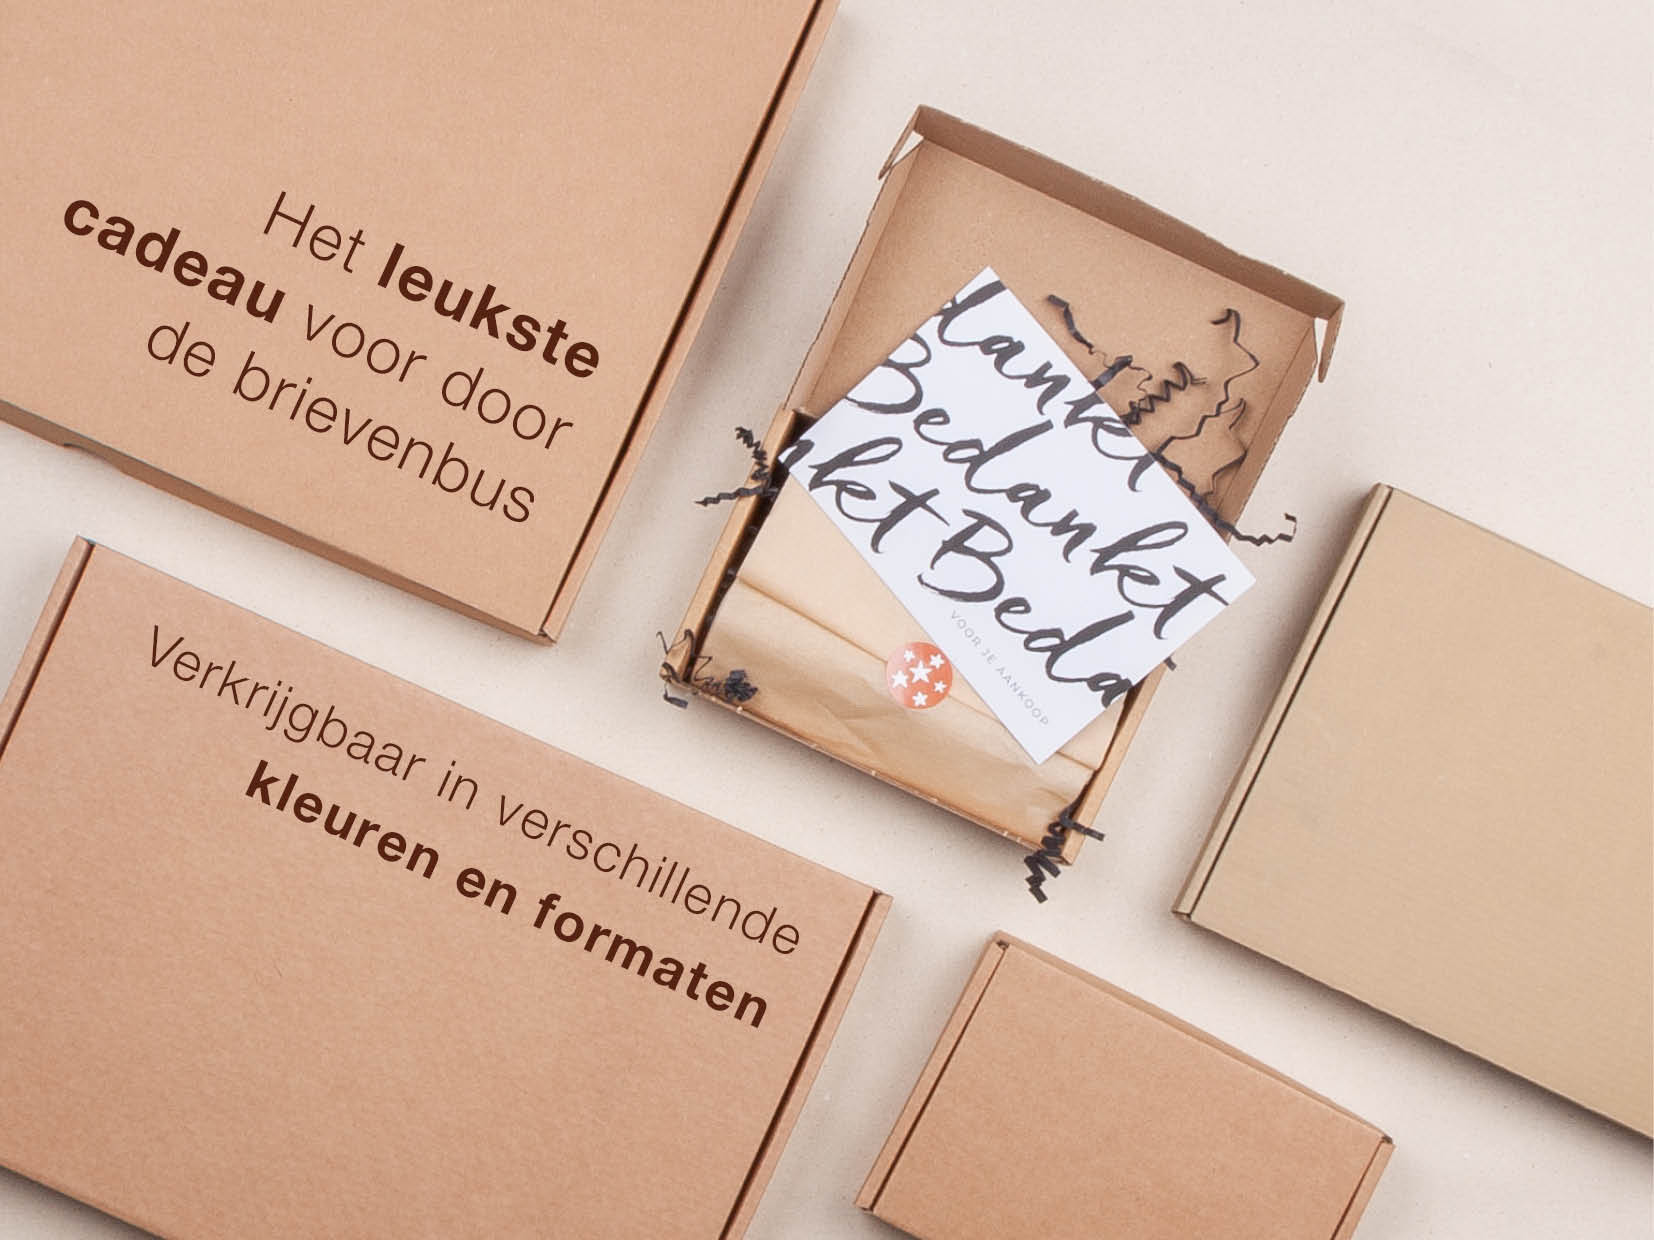 Het leukste
cadeau voor door
de brievenbus
Verkrijgbaar in verschillende
kleuren en formaten
dankt
Bedankt
nkt Beda
VOOR JE AANKOOP